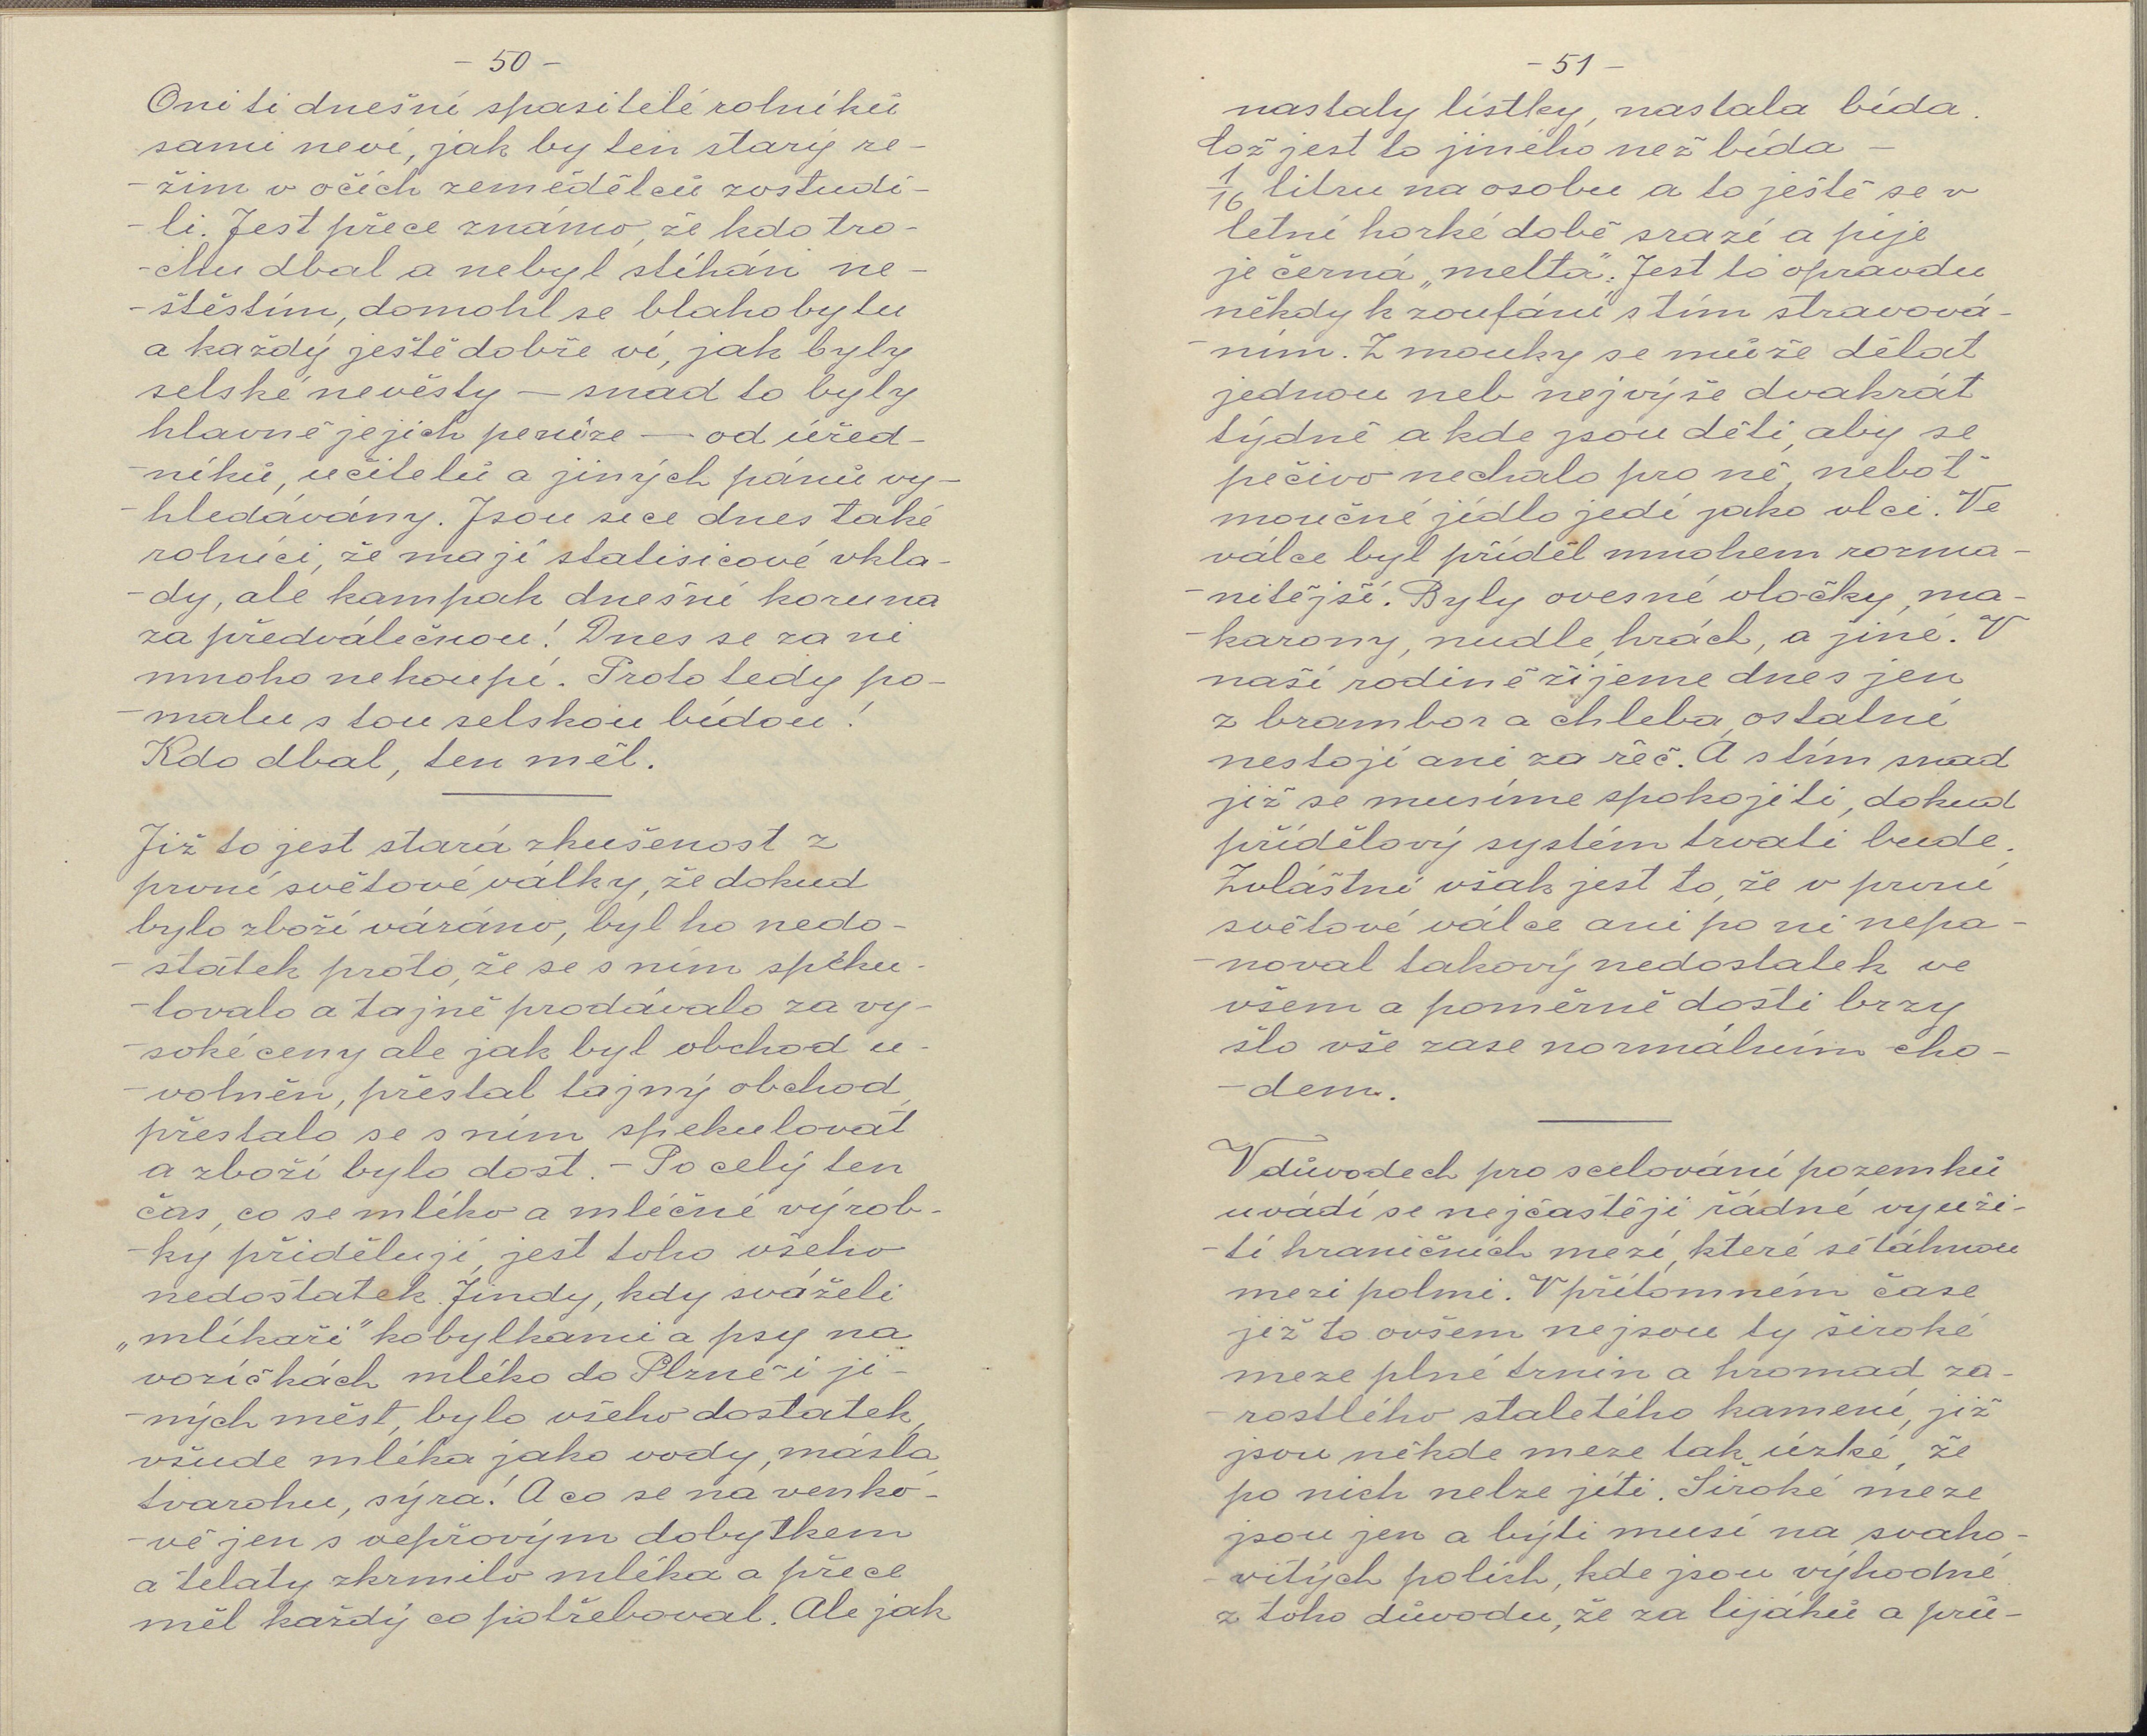 - 50 -
Oni ti dnešní spasitelé rolníků
sami neví, jak by ten starý re-
-žim v očích zemědělců zostudi-
-li. Jest přece známo, že kdo tro-
-chu dbal a nebyl stíhán ne-
-štěstím, domohl se blahobytu
a každý ještě dobře ví, jak byly
selské nevěsty — snad to byly
hlavně jejich peníze — od úřed-
-níků, učitelů a jiných pánů vy-
-hledávány. Jsou sice dnes také
rolníci, že mají statisicové vkla-
-dy, ale kampak dnešní koruna
za předválečnou! Dnes se za ni
mnoho nekoupí. Proto tedy po-
-malu s tou selskou bídou!
Kdo dbal, ten měl.
Již to jest stará zkušenost z
první světové války, že dokud
bylo zboží vázáno, byl ho nedo-
-statek proto, že se s ním speku-
-lovalo a tajně prodávalo za vy-
-soké ceny ale jak byl obchod u-
-volněn, přestal tajný obchod,
přestalo se s ním spekulovat
a zboží bylo dost. - Po celý ten
čas, co se mléko a mléčné výrob-
-ky přidělují, jest toho všeho
nedostatek. Jindy, kdy sváželi
„mlíkaři" kobylkami a psy na
vozíčkách mléko do Plzně i ji-
-ných měst, bylo všeho dostatek,
všude mléka jako vody, másla,
tvarohu, sýra! A co se na venko-
-vě jen s vepřovým dobytkem
a telaty zkrmilo mléka a přece
měl každý co potřeboval. Ale jak
- 51 -
nastaly lístky, nastala bída.
Což jest to jiného než bída —
1/16 litru na osobu a to ještě se v
letní horké době srazí a pije
je černá „melta". Jest to opravdu
někdy k zoufání s tím stravová-
-ním. Z mouky se může dělat
jednou neb nejvýše dvakrát
týdně a kde jsou děti, aby se
pečivo nechalo pro ně, neboť
moučné jídlo jedí jako vlci. Ve
válce byl příděl mnohem rozma-
-nitější. Byly ovesné vločky, ma-
-karony, nudle, hrách, a jiné. V
naší rodině žijeme dnes jen
z brambor a chleba, ostatní
nestojí ani za řeč. A s tím snad
již se musíme spokojiti, dokud
přídělový systém trvati bude.
Zvláštní však jest to, že v první
světové válce ani po ní nepa-
-noval takový nedostatek ve
všem a poměrně dosti brzy
šlo vše zase normálním cho-
-dem.
V důvodech pro scelování pozemků
uvádí se nejčastěji řádné využi-
-tí hraničních mezí, které se táhnou
mezi polmi. V přítomném čase
již to ovšem nejsou ty široké
meze plné trnin a hromad za-
-rostlého staletého kamení, již
jsou někde meze tak úzké, že
po nich nelze jíti. Široké meze
jsou jen a býti musí na svaho-
-vitých polích, kde jsou výhodné
z toho důvodu, že za lijáků a prů-